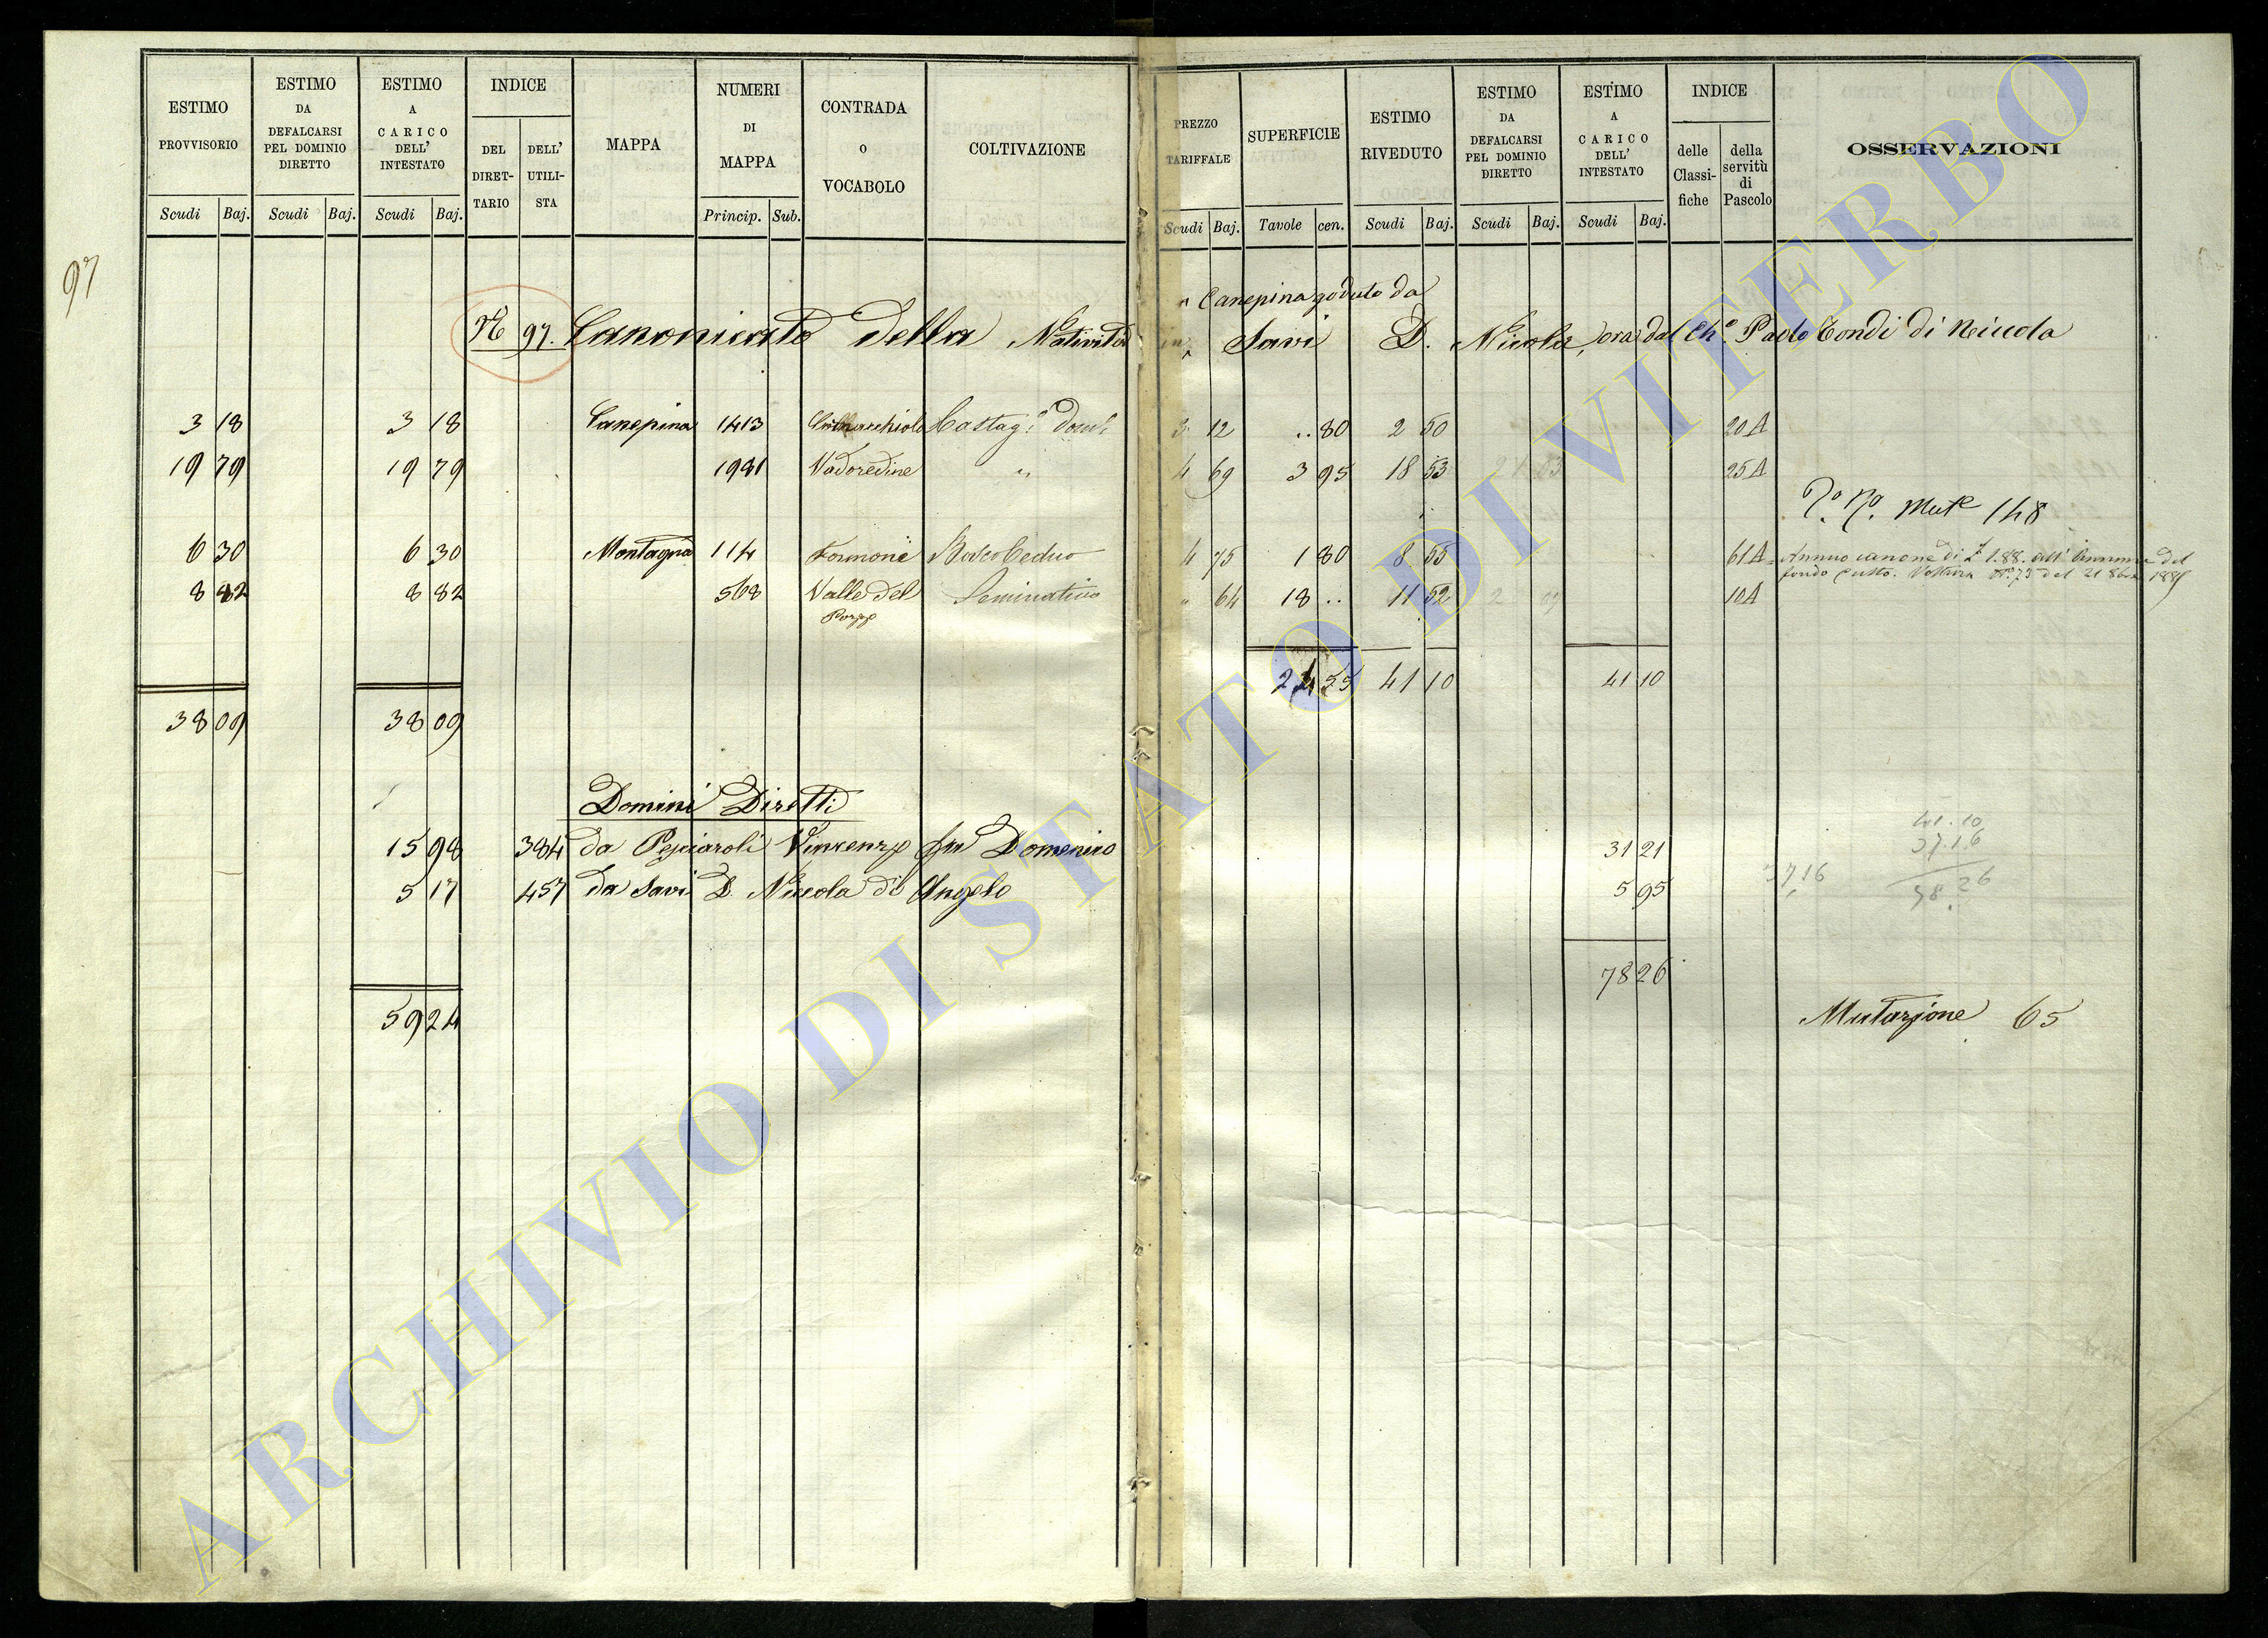 ESTIMO PROVVISORIO
Scudi Baj.
ESTIMO DA DEFALCARSI PEL DOMINIO DIRETTO
Scudi Baj.
ESTIMO A CARICO DELL' INTESTATO
Scudi Baj.
INDICE
DEL DIRET-TARIO
DELL' UTILI-STA
MAPPA
NUMERI DI MAPPA
Princip. Sub.
CONTRADA O VOCABOLO
COLTIVAZIONE
PREZZO TARIFFALE
Scudi Baj.
SUPERFICIE
Tavole cen.
ESTIMO RIVEDUTO
Scudi Baj.
ESTIMO DA DEFALCARSI PEL DOMINIO DIRETTO
Scudi Baj.
ESTIMO A CARICO DELL' INTESTATO
Scudi Baj.
INDICE
delle Classi-fiche
della servitù di Pascolo
OSSERVAZIONI
97
N° 97. Canonicato della Natività in Canepina goduto da
Savi D. Nicola, ora dal Ch.° Paolo Tondi di Niccola
3 18 3 18 Canepina 1413 Castag.° Dom.° 3 12 .. 80 2 50 20A
19 79 19 79 1981 Vadoredine " 4 69 3 95 18 53 25A
Mut.e 148
6 30 6 30 Montagna 114 Formone Bosco Ceduo 4 75 1 80 8 55 61A Annuo canone di £ 1.88. all' Comune del
fondo Voltura N° 73 del 21 8bre 188
8 82 8 82 568 Valle del Pozzo Seminativo " 64 18 .. 11 52 10A
24 55 41 10 41 10
38 09 38 09
Domini Diretti
15 98 384 da Pesciaroli Vincenzo fu Domenico 31 21
5 17 457 da Savi D. Niccola di Angelo 5 95
41.10
37.16
37 16
78.26
78 26
59 24
Mutazione 65
ARCHIVIO DI STATO DI VITERBO